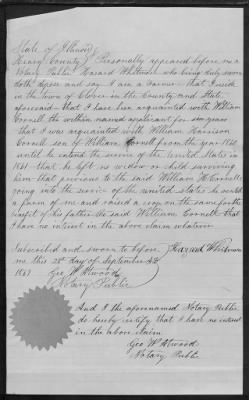 State of Illinois
Henry County } Personally appeared before me a
Notary Public Hazard Whitmore who being duly sworn
doth depose and say I am a Farmer – that I reside
in the Town of Clover in the County and State
aforesaid – that I have been acquainted with William
Cornell the within named applicant for years
that I was acquainted with William Harrison
Cornell son of William Cornell from the year
until he entered the service of the United States in
1861 that he left no widow or child surviving
him that previous to the said William H Cornell
going into the service of the united states he rented
a farm of me and raised a crop on the same for the
benefit of his father the said William Cornell. That
I have no interest in the above claim whatever
Subscribed and sworn to before Hazard Whitmore
me this 28th day of September AD
186 Geo W Atwood
Notary Public
And I the aforenamed Notary Public
do hereby certify that I have no interest
in the above claim
Geo W Atwood
Notary Public